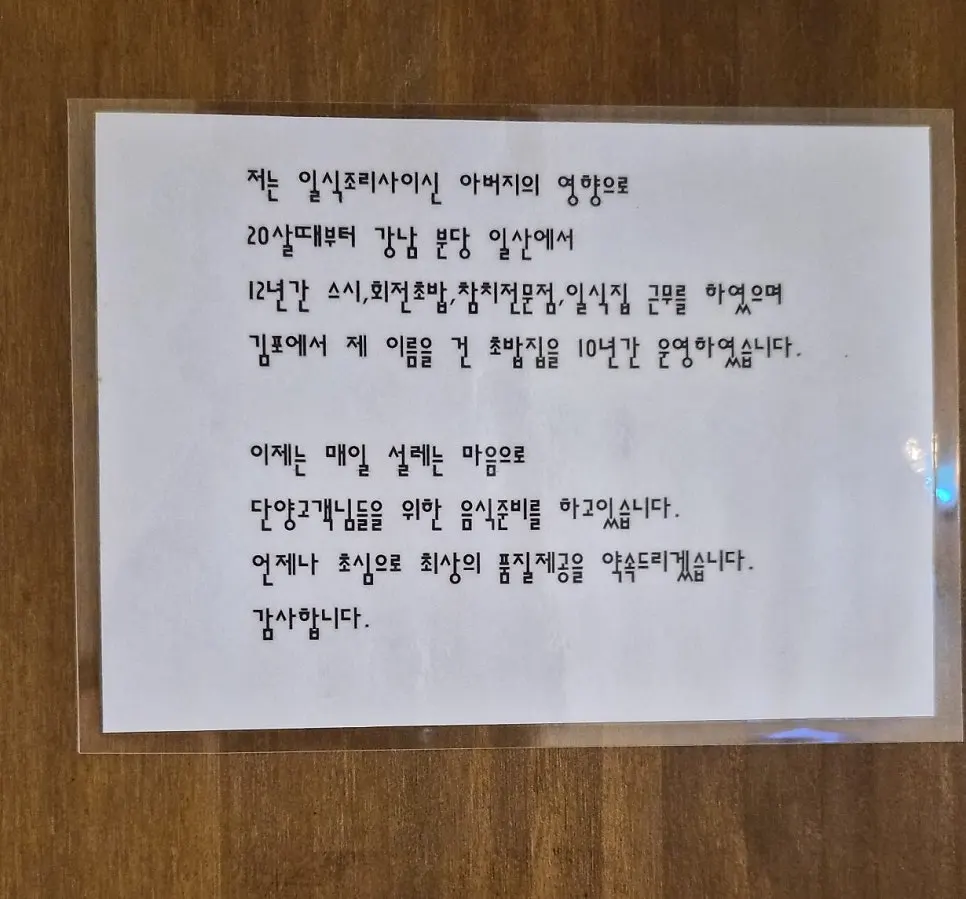 저는 일식조리사이신 아버지의 영향으로
20살때부터 강남 분당 일산에서
12년간 스시,회전초밥,참치전문점,일식집 근무를 하였으며
김포에서 제 이름을 건 초밥집을 10년간 운영하였습니다.
이제는 매일 설레는 마음으로
단양고객님들을 위한 음식준비를 하고있습니다.
언제나 초심으로 최상의 품질제공을 약속드리겠습니다.
감사합니다.